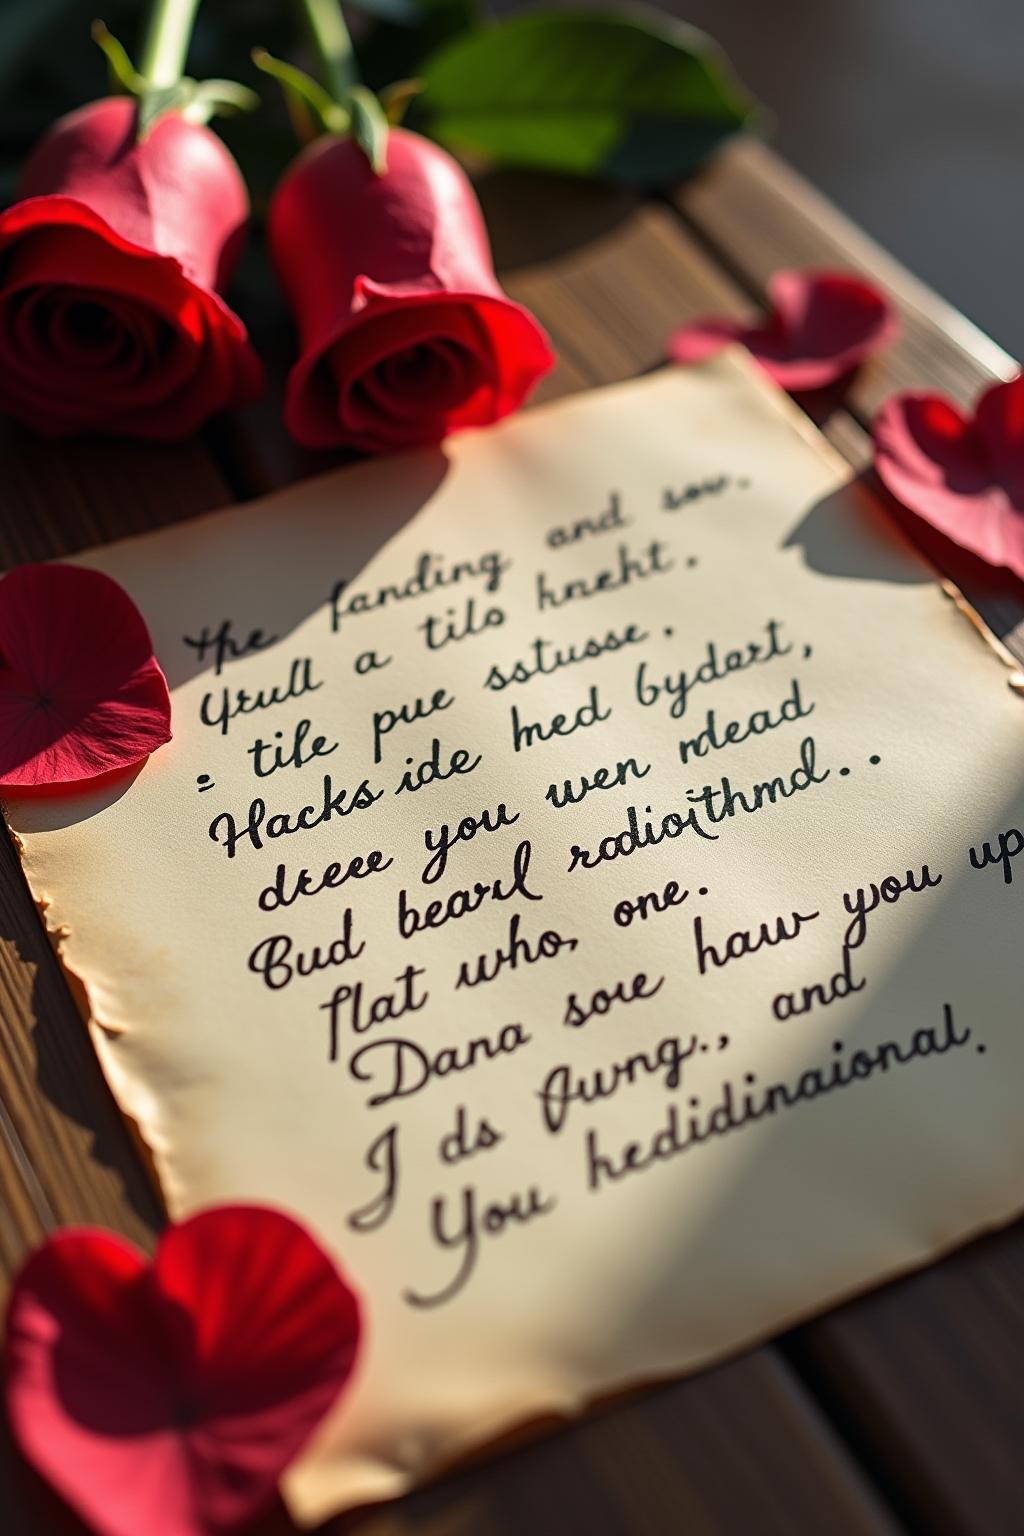 the fanding and sow.
Yrull a tils kneht.
= tile pue sstusse.
Hacks ide hned bydart,
dreee you wen rdead
Cud bearl radioithmd..
flat who, one.
Dana sore haw you up
I ds Qwng., and
You hedidinaional.